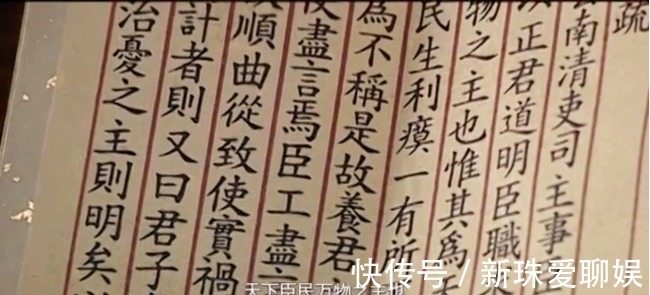 疏
南清吏司主事
正君道明臣職
物之主也惟其為
民生利瘼一有所
為不稱是故養君
使盡言焉臣工盡
順曲從致使實禍
計者則又曰君子
治憂之主則明矣
天下臣民万物之主也
快传号 / 新珠爱聊娱